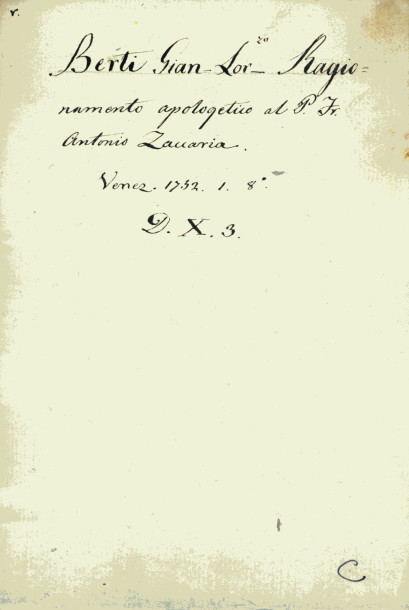 r.
Berti Gian-Lor.zo Ragio=
namento apologetico al P. Fr.
Antonio Zaccaria.
Venez. 1752. 1. 8°.
D. X. 3.
C